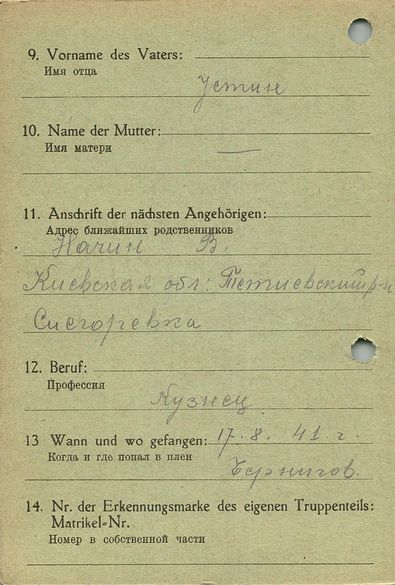 9. Vorname des Vaters:
Имя отца
Устин
10. Name der Mutter:
Имя матери
—
11. Anschrift der nächsten Angehörigen:
Адрес ближайших родственников
В.
Киевская обл: Тетиевский р-н
12. Beruf:
Профессия
Кузнец
13 Wann und wo gefangen: 17. 8. 41 г.
Когда и где попал в плен
Чернигов.
14. Nr. der Erkennungsmarke des eigenen Truppenteils:
Matrikel-Nr.
Номер в собственной части